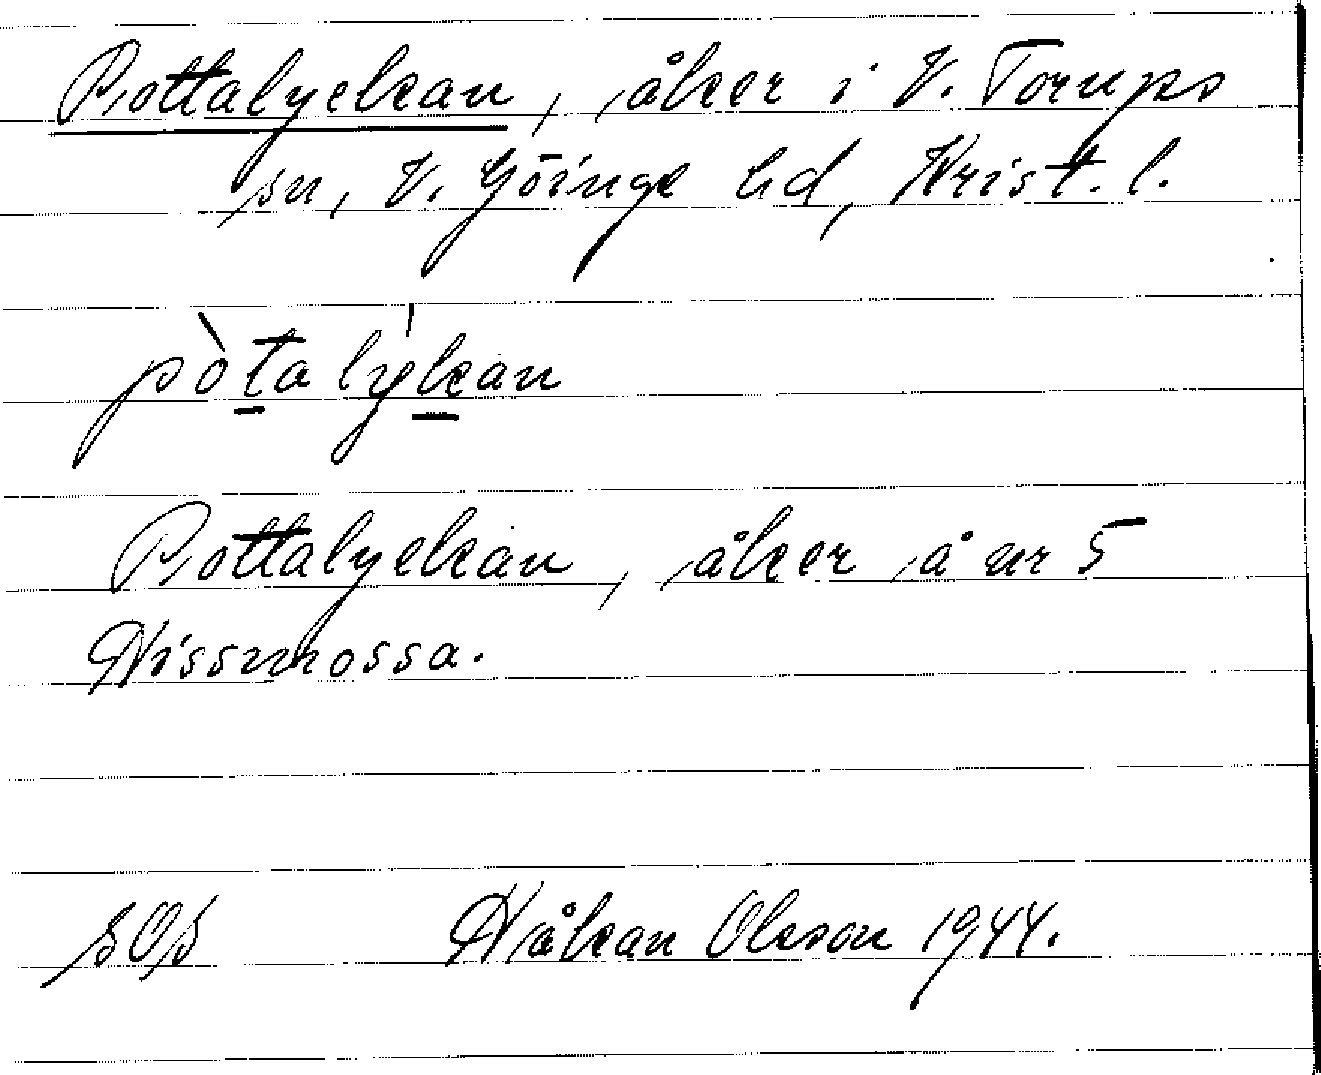 Pottalyckan, åker i V. Torups
sn, V. Göinge hd, Krist. l.
pòta lýkan
Pottalyckan, åker å nr 5
Nissmossa.
SOS Håkan Olsson 1944.